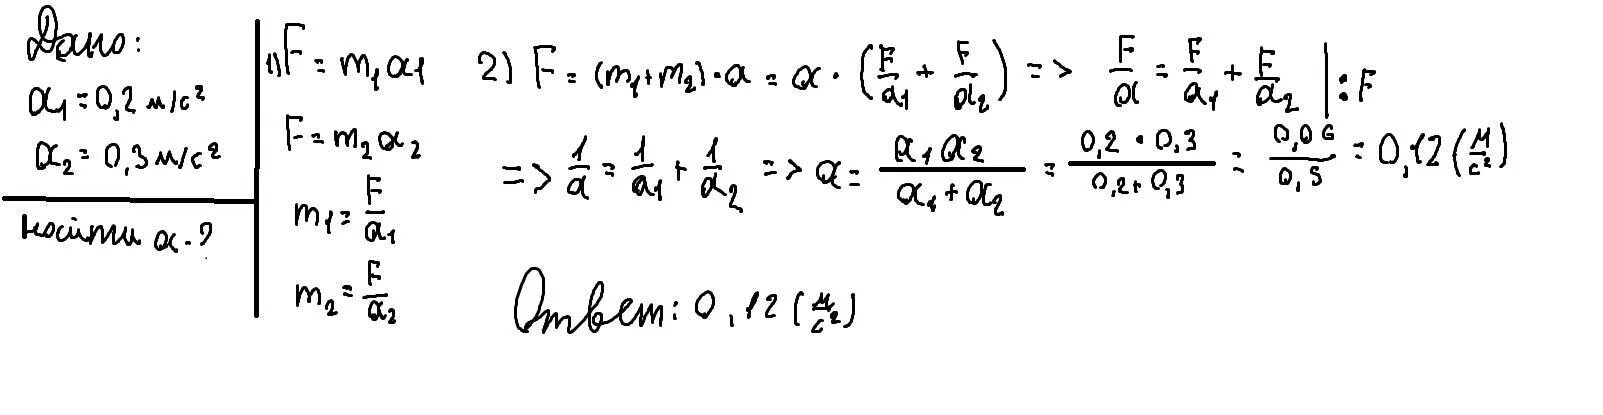 Дано:
a₁ = 0,2 м/с²
a₂ = 0,3 м/с²
Найти a - ?
1) F = m₁a₁
F = m₂a₂
m₁ = F/a₁
m₂ = F/a₂
2) F = (m₁+m₂)·a = a·(F/a₁ + F/a₂) => F/a = F/a₁ + F/a₂ | :F
=> 1/a = 1/a₁ + 1/a₂ => a = a₁a₂/(a₁+a₂) = 0,2·0,3/0,2+0,3 = 0,06/0,5 = 0,12 (м/с²)
Ответ: 0,12 (м/с²)